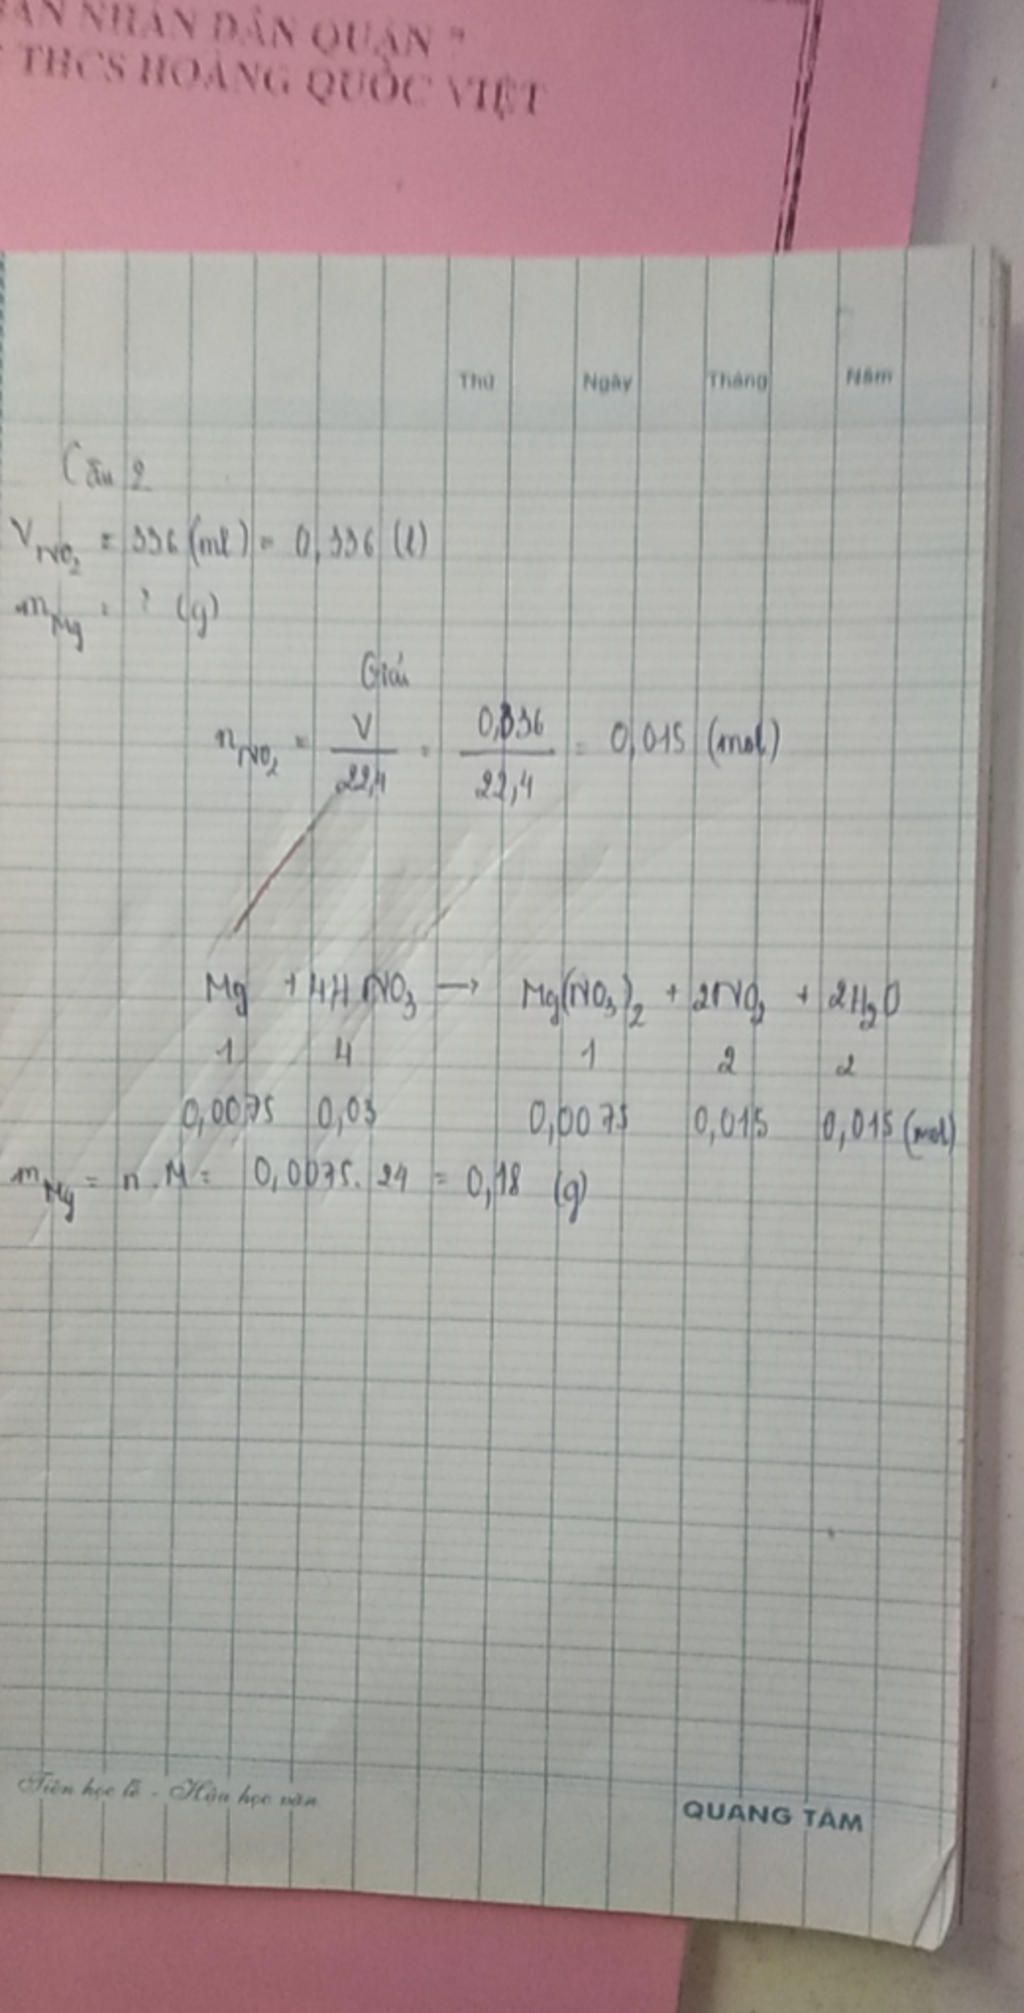 NHÂN DÂN QUẬN 7
THCS HOÀNG QUỐC VIỆT
Thứ Ngày Tháng Năm
Câu 2
V_NO₂ = 336 (ml) = 0,336 (l)
m_Mg = ? (g)
Giải
n_NO₂ = V/22,4 = 0,336/22,4 = 0,015 (mol)
Mg + 4HNO₃ → Mg(NO₃)₂ + 2NO₂ + 2H₂O
1 4 1 2 2
0,0075 0,03 0,0075 0,015 0,015 (mol)
m_Mg = n . M = 0,0075 . 24 = 0,18 (g)
Tiên học lễ - Hậu học văn
QUANG TÂM